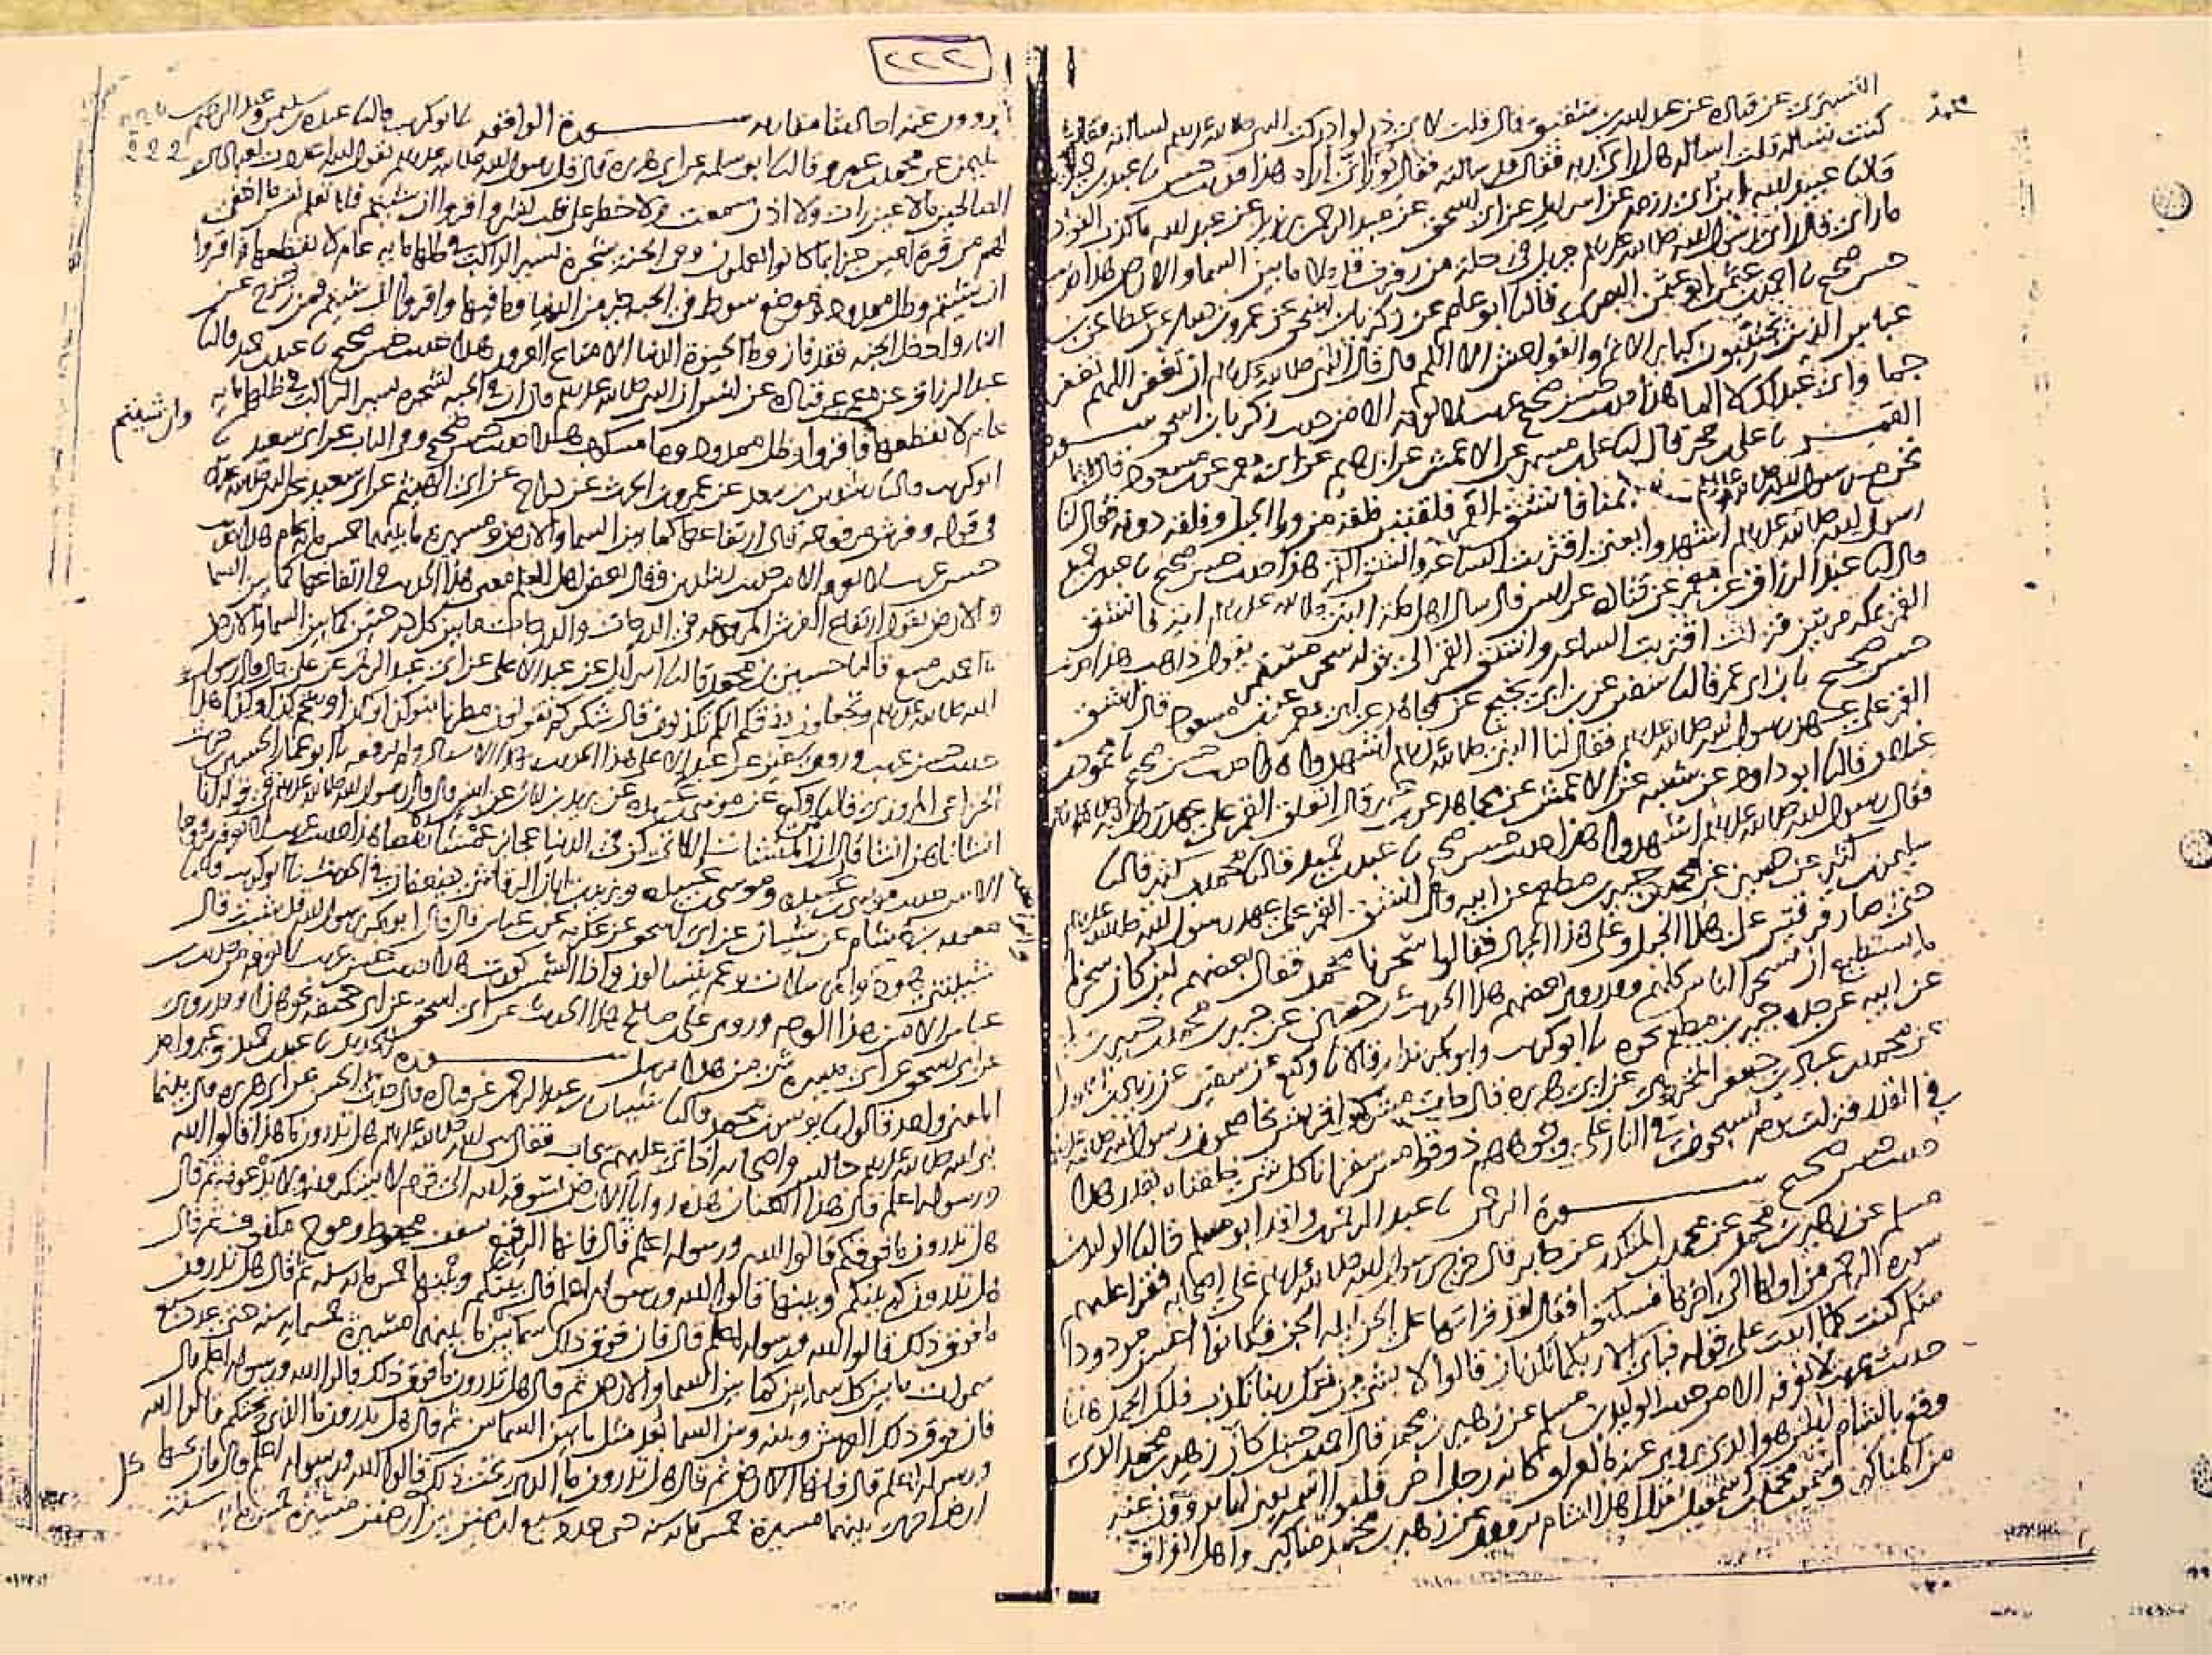 محمد
التستري عن قتادة عن عبد الله بن شقيق قال قلت لابي ذر لو ادركت النبي صلى الله عليه وسلم لسالته فقال عما
كنت تساله قلت اساله هل راى محمد ربه فقال قد سالته فقال نورا انى اراه هذا حديث حسن نا عبد بن حميد
قال نا عبيد الله وابن ابي رزمة عن اسرايل عن ابي اسحق عن عبد الرحمن بن يزيد عن عبد الله ما كذب الفواد
ما راى قال راى رسول الله صلى الله عليه وسلم جبريل في حلة من رفرف قد ملا ما بين السما والارض هذا حديث
حسن صحيح نا احمد بن عثمن ابو عثمن البصري قال نا ابو عاصم عن زكريا بن اسحق عن عمرو بن دينار عن عطا عن ابن
عباس الذين يجتنبون كباير الاثم والفواحش الا اللمم قال قال النبي صلى الله عليه وسلم ان تغفر اللهم تغفر
جما واي عبد لك لا الما هذا حديث حسن صحيح غريب لا نعرفه الا من حديث زكريا بن اسحق سورة
القمر نا علي بن حجر قال نا علي بن مسهر عن الاعمش عن ابرهيم عن ابي معمر عن ابن مسعود قال بينما
نحن مع رسول الله صلى الله عليه وسلم بمنا فانشق القمر فلقتين فلقة من ورا الجبل وفلقة دونه فقال لنا
رسول الله صلى الله عليه وسلم اشهدوا يعني اقتربت الساعة وانشق القمر هذا حديث حسن صحيح نا عبد بن حميد
قال نا عبد الرزاق عن معمر عن قتادة عن انس قال سال اهل مكة النبي صلى الله عليه وسلم اية فانشق
القمر بمكة مرتين فنزلت اقتربت الساعة وانشق القمر الى قوله سحر مستمر يقول ذاهب هذا حديث
حسن صحيح نا ابن ابي عمر قال نا سفين عن ابن ابي نجيح عن مجاهد عن ابي معمر عن ابن مسعود قال انشق
القمر على عهد رسول الله صلى الله عليه وسلم فقال لنا النبي صلى الله عليه وسلم اشهدوا هذا حديث حسن صحيح نا محمود بن
غيلان قال نا ابو داود عن شعبة عن الاعمش عن مجاهد عن ابن عمر قال انفلق القمر على عهد رسول الله صلى الله عليه وسلم
فقال رسول الله صلى الله عليه وسلم اشهدوا هذا حديث حسن صحيح نا عبد بن حميد قال نا محمد بن كثير قال نا
سليمن بن كثير عن حصين عن محمد بن جبير بن مطعم عن ابيه قال انشق القمر على عهد رسول الله صلى الله عليه وسلم
حتى صار فرقتين على هذا الجبل وعلى هذا الجبل فقالوا سحرنا محمد فقال بعضهم لين كان سحرنا
ما يستطيع ان يسحر الناس كلهم وقد روى بعضهم هذا الحديث عن حصين عن جبير بن محمد بن جبير بن مطعم
عن ابيه عن جده جبير بن مطعم نحوه نا ابو كريب وابو بكر بندار قالا نا وكيع عن سفين عن زياد بن اسمعيل
عن محمد بن عباد بن جعفر المخزومي عن ابي هريرة قال جات مشركوا قريش يخاصمون رسول الله صلى الله عليه وسلم
في القدر فنزلت يوم يسحبون في النار على وجوههم ذوقوا مس سقر انا كل شي خلقناه بقدر هذا
حديث حسن صحيح سورة الرحمن نا عبد الرحمن بن واقد ابو مسلم قال نا الوليد بن
مسلم عن زهير بن محمد عن محمد بن المنكدر عن جابر قال خرج رسول الله صلى الله عليه وسلم على اصحابه فقرا عليهم
سورة الرحمن من اولها الى اخرها فسكتوا فقال لقد قراتها على الجن ليلة الجن فكانوا احسن مردودا
منكم كنت كلما اتيت على قوله فباي الا ربكما تكذبان قالوا لا بشي من نعمك ربنا نكذب فلك الحمد هذا
حديث غريب لا نعرفه الا من حديث الوليد بن مسلم عن زهير بن محمد قال احمد بن حنبل كان زهير بن محمد الذي
وقع بالشام ليس هو الذي يروى عنه بالعراق كانه رجل اخر قلبوا اسمه يعني لما يروون عنه
من المناكير وسمعت محمد بن اسمعيل يقول اهل الشام يروون عن زهير بن محمد مناكير واهل العراق
٢٢٢
222
يروون عنه احاديث مقاربة سورة الواقعة نا ابو كريب قال نا عبدة بن سليمن وعبد الرحيم بن
سليمن عن محمد بن عمرو قال نا ابو سلمة عن ابي هريرة قال قال رسول الله صلى الله عليه وسلم يقول الله اعددت لعبادي
الصالحين ما لا عين رات ولا اذن سمعت ولا خطر على قلب بشر واقروا ان شيتم فلا تعلم نفس ما اخفي
لهم من قرة اعين جزا بما كانوا يعملون وفي الجنة شجرة يسير الراكب في ظلها ماية عام لا يقطعها واقروا
ان شيتم وظل ممدود وموضع سوط في الجنة خير من الدنيا وما فيها واقروا ان شيتم فمن زحزح عن
النار وادخل الجنة فقد فاز وما الحيوة الدنيا الا متاع الغرور هذا حديث حسن صحيح نا عبد بن حميد قال نا
عبد الرزاق عن معمر عن قتادة عن انس ان النبي صلى الله عليه وسلم قال ان في الجنة لشجرة يسير الراكب في ظلها ماية
وان شيتم
عام لا يقطعها فاقروا وظل ممدود وما مسكوب هذا حديث حسن صحيح وفي الباب عن ابي سعيد نا
ابو كريب قال نا رشدين بن سعد عن عمرو بن الحرث عن دراج عن ابي الهيثم عن ابي سعيد عن النبي صلى الله عليه وسلم
في قوله وفرش مرفوعة قال ارتفاعها كما بين السما والارض ومسيرة ما بينهما خمس ماية عام هذا حديث
حسن غريب لا نعرفه الا من حديث رشدين وقال بعض اهل العلم معنى هذا الحديث وارتفاعها كما بين السما
والارض يقول ارتفاع الفرش المرفوعة في الدرجات والدرجات ما بين كل درجتين كما بين السما والارض
نا احمد بن منيع قال نا حسين بن محمد قال نا اسرايل عن عبد الاعلى عن ابي عبد الرحمن عن علي قال قال رسول
الله صلى الله عليه وسلم وتجعلون رزقكم انكم تكذبون قال شكركم تقولون مطرنا بنو كذا وكذا وبنجم كذا وكذا هذا
حديث حسن غريب وروى سفين عن عبد الاعلى هذا الحديث بهذا الاسناد ولم يرفعه نا ابو عمار الحسين بن حريث
الخزاعي المروزي قال نا وكيع عن موسى بن عبيدة عن يزيد بن ابان عن انس قال قال رسول الله صلى الله عليه وسلم في قوله انا
انشاناهن انشا قال ان من المنشات اللاتي كن في الدنيا عجايز عمشا رمصا هذا حديث غريب لا نعرفه مرفوعا
الا من حديث موسى بن عبيدة وموسى بن عبيدة ويزيد بن ابان الرقاشي يضعفان في الحديث نا ابو كريب قال نا
معوية بن هشام عن شيبان عن ابي اسحق عن عكرمة عن ابن عباس قال قال ابو بكر يرسول الله قد شبت قال
شيبتني هود والواقعة والمرسلات وعم يتسالون واذا الشمس كورت هذا حديث حسن غريب لا نعرفه من حديث ابن
عباس الا من هذا الوجه وروى علي بن صالح هذا الحديث عن ابي اسحق عن ابي جحيفة نحو هذا وقد روي
عن ابي اسحق عن ابي ميسرة شي من هذا مرسل سورة الحديد نا عبد بن حميد وغير واحد
المعنى واحد قالوا نا يونس بن محمد قال نا شيبان بن عبد الرحمن عن قتادة قال حدث الحسن عن ابي هريرة قال بينما
نبي الله صلى الله عليه وسلم جالس واصحابه اذ اتى عليهم سحاب فقال نبي الله صلى الله عليه وسلم هل تدرون ما هذا قالوا الله
ورسوله اعلم قال هذا العنان هذه روايا الارض يسوقه الله الى قوم لا يشكرونه ولا يدعونه ثم قال
هل تدرون ما فوقكم قالوا الله ورسوله اعلم قال فانها الرقيع سقف محفوظ وموج مكفوف ثم قال
هل تدرون كم بينكم وبينها قالوا الله ورسوله اعلم قال بينكم وبينها خمس ماية سنة ثم قال هل تدرون
ما فوق ذلك قالوا الله ورسوله اعلم قال فان فوق ذلك سماين ما بينهما مسيرة خمسماية سنة حتى عد سبع
سموات ما بين كل سماين كما بين السما والارض ثم قال هل تدرون ما فوق ذلك قالوا الله ورسوله اعلم قال
فان فوق ذلك العرش وبينه وبين السما بعد مثل ما بين السماين ثم قال هل تدرون ما الذي تحتكم قالوا الله
ورسوله اعلم قال فانها الارض ثم قال هل تدرون ما الذي تحت ذلك قالوا الله ورسوله اعلم قال فان تحتها
ارضا اخرى بينهما مسيرة خمس ماية سنة حتى عد سبع ارضين بين كل ارضين مسيرة خمس ماية سنة